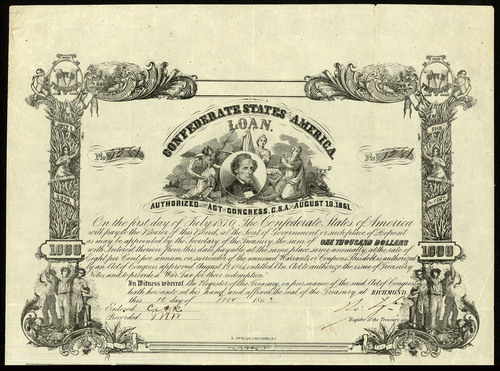 CONFEDERATE STATES AMERICA
LOAN.
No.
No.
AUTHORIZED ACT CONGRESS, C.S.A. AUGUST 19, 1861.
On the first day of July 18 The Confederate States of America
will pay to the Bearer of this Bond, at the Seat of Government or such place of Deposit
as may be appointed by the Secretary of the Treasury, the sum of ONE THOUSAND DOLLARS
with Interest thereon from this date, payable at the same place, semi annually, at the rate of
Eight per Cent per annum, on surrender of the annexed Warrants or Coupons. This debt is authorized
by an Act of Congress approved August 19, 1861 entitled An Act to authorize the issue of Treasury
Notes, and to provide a War Tax for their redemption.
In Witness whereof, The Register of the Treasury, in pursuance of the said Act of Congress
hath hereunto set his hand and affixed the seal of the Treasury at RICHMOND
this 10 day of 186
Entered
Recorded
Register of the Treasury
1000
1000